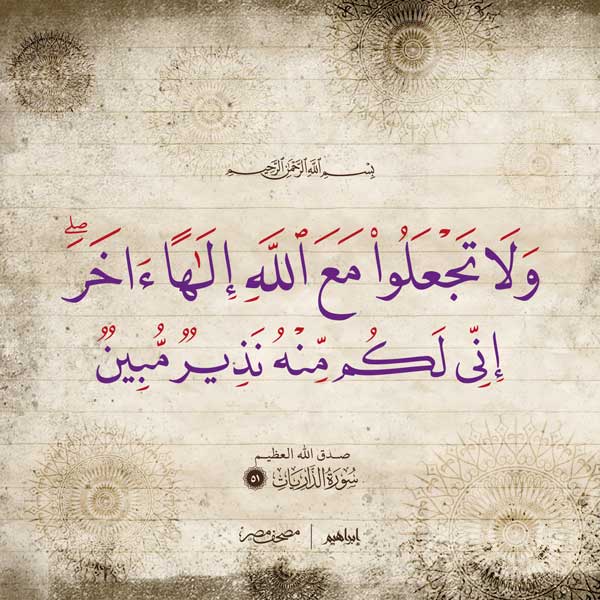 بِسْمِ ٱللَّهِ ٱلرَّحْمَٰنِ ٱلرَّحِيمِ
وَلَا تَجْعَلُوا۟ مَعَ ٱللَّهِ إِلَـٰهًا ءَاخَرَ ۖ
إِنِّى لَكُم مِّنْهُ نَذِيرٌ مُّبِينٌ
صدق الله العظيم
سُورَةُ الذَّارِيَات ٥١
إبراهيم | مصحف مصر